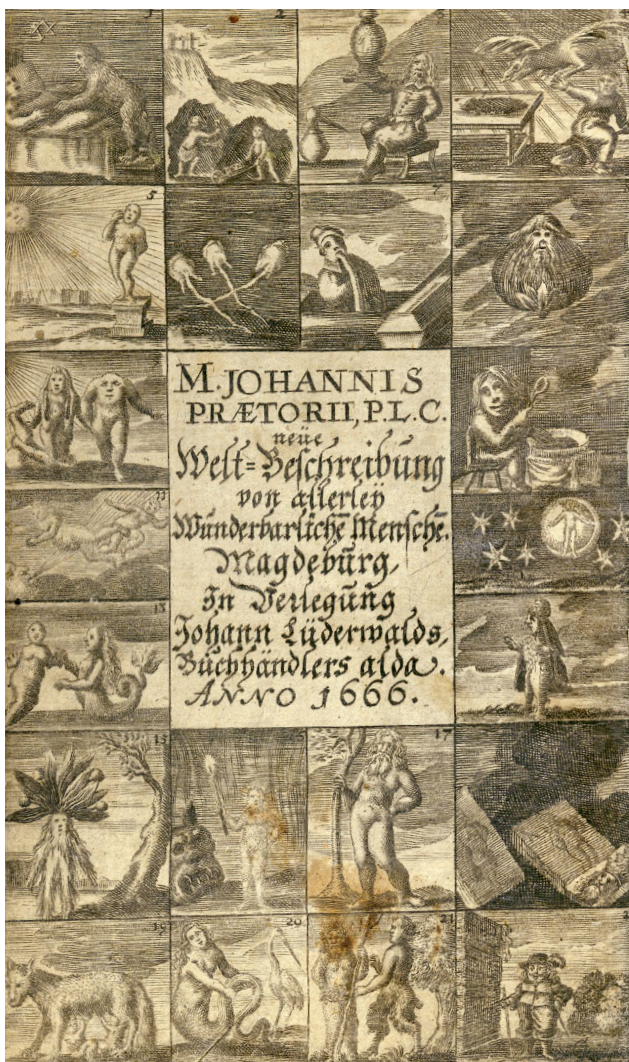 XX 1 2
5 6 7
M. JOHANNIS
PRÆTORII, P.L.C.
neüe
Welt=Beschreibung
von allerleÿ
Wunderbarlichē Menschē.
Magdeburg,
In Verlegung
Johann Lüderwalds,
Buchhändlers alda.
ANNO 1666.
15 17
19 20 21